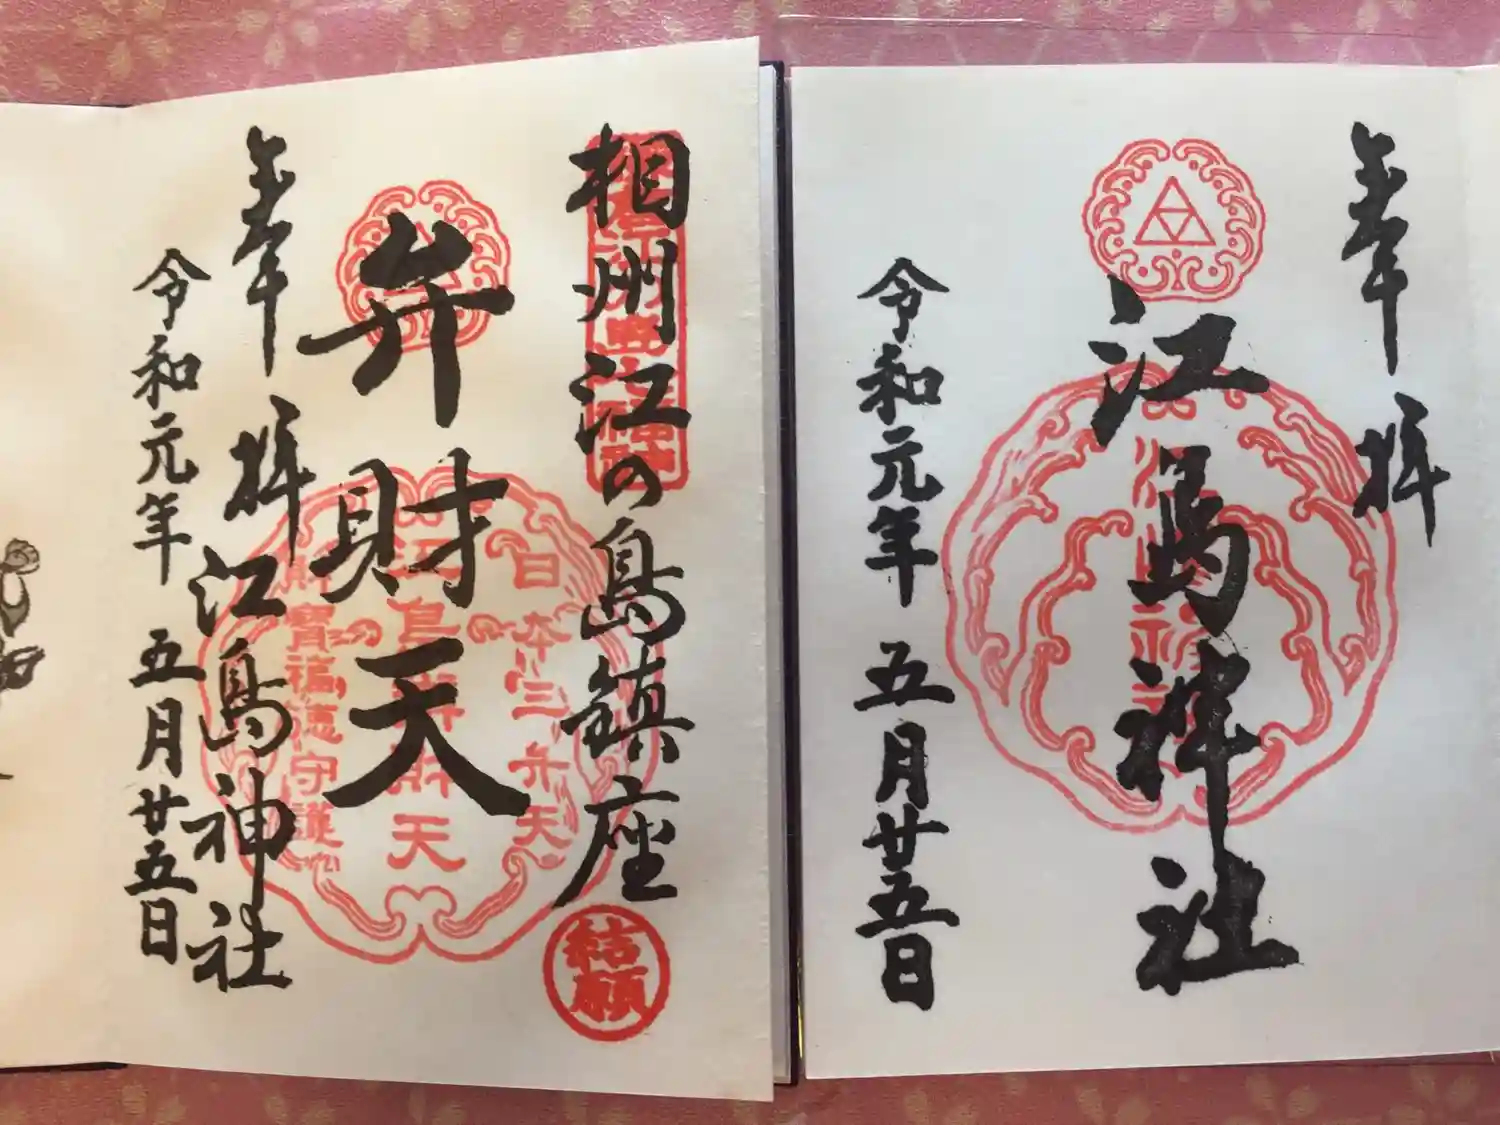 奉拝
江島神社
令和元年五月廿五日
相州江の島鎮座
結願
弁財天
日本三弁天
江島弁財天
財寶福徳守護
奉拝
江島神社
令和元年五月廿五日